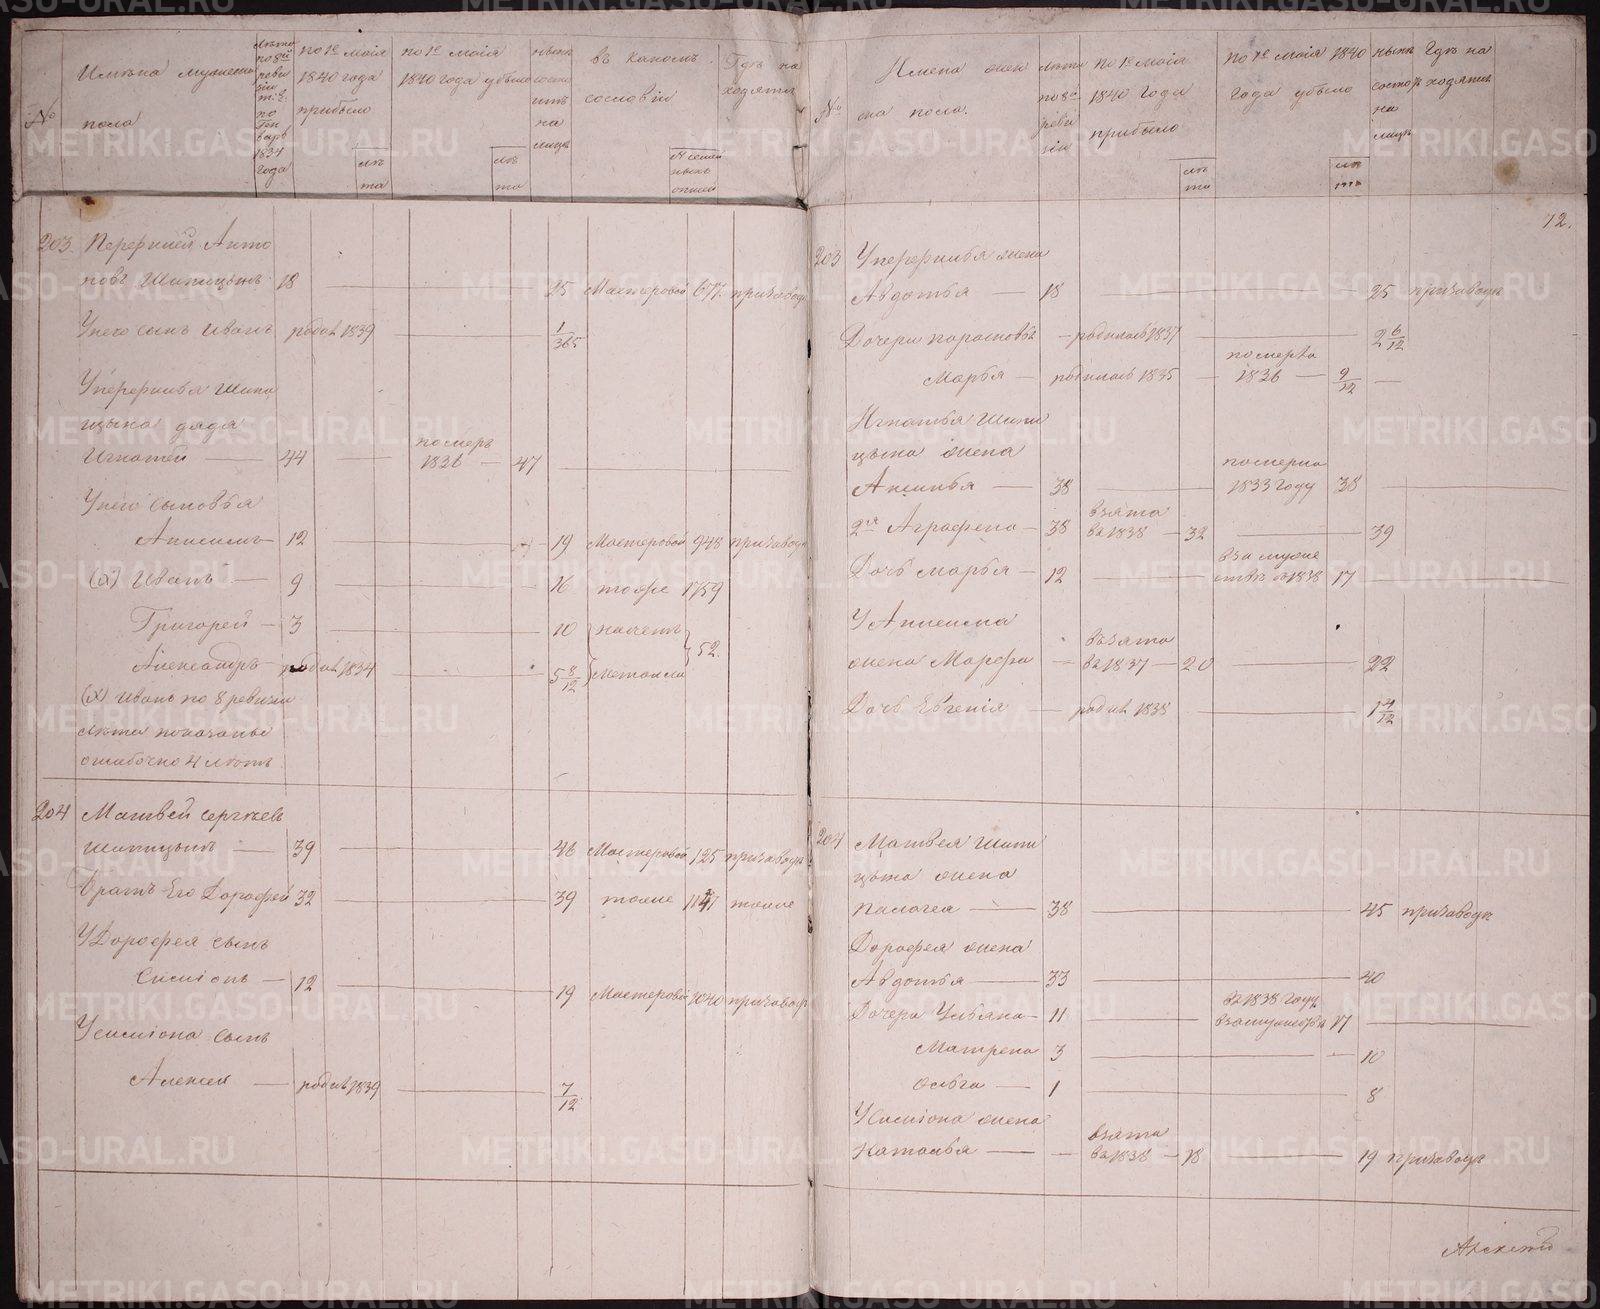 №
Имѣна мужеска
пола
лѣта
по 8й
реви
зіи
по
Ген
варь
1834
года
по 1е маія
1840 года
прибыло
лѣ
та
по 1е маія
1840 года убыло
лѣ
та
нынѣ
состо
итъ
на
лицѣ
въ какомъ
сословіи
№ семей
ныхъ
списей
Гдѣ на
ходятся
203 Перфилей Анто
новъ Шипицынъ 18 25 Мастеровой 677 призаводѣ
Унего сынъ Иванъ родил 1839 1/365
Уперфилья Шипи
цына дядя
Игнатей 44 померъ 1836 47
Унего сыновья
Анисимъ 12 19 Мастеровой 948 призаводѣ
(х) Иванъ 9 16 тоже 1759
Григорей 3 10
Александръ родил 1834 5 8/12 52
(х) Иванъ по 8 ревизіи
лѣта показаны
ошибочно 4 лѣтъ
204 Матвей Сергѣев
Шипицынъ 39 46 Мастеровой 125 призаводѣ
Братъ Его Дорофей 32 39 тоже тоже
УДорофея сынъ
Симіонъ 12 19 Мастеровой 1040 призаводѣ
Усиміона сынъ
Алексей родил 1839 7/12
№
Имена жен
ска пола
лѣта
по 8й
реви
зіи
по 1е маія
1840 года
прибыло
лѣ
та
по 1е маія 1840
года убыло
лѣ
та
нынѣ
состоитъ
на
лицѣ
Гдѣ на
ходятся
72.
203 Уперфилья жена
Авдотья 18 25 призаводѣ
Дочери парасковья родилась 1837 2 6/12
Марья родилась 1835 померла 1836 9/12
Игнатья Шипи
цына жена
Аксинья 38 померла 1833 году 38
2я Аграфена 38 взята въ 1838 32 39
Дочь Марья 12 взамуже ствѣ въ 1838 17
У Анисима
жена Марфа взята въ 1837 20 22
Дочь Евгенія родил 1838 1 4/12
204 Матвея Шипи
цына жена
Палагея 38 45 призаводѣ
Дорофея жена
Авдотья 33 40
Дочери Ульяна 11 въ 1838 году взамужествѣ 17
Матрена 3 10
Ольга 1 8
Усиміона жена
Наталья взята въ 1838 18 19 призаводѣ
METRIKI.GASO-URAL.RU